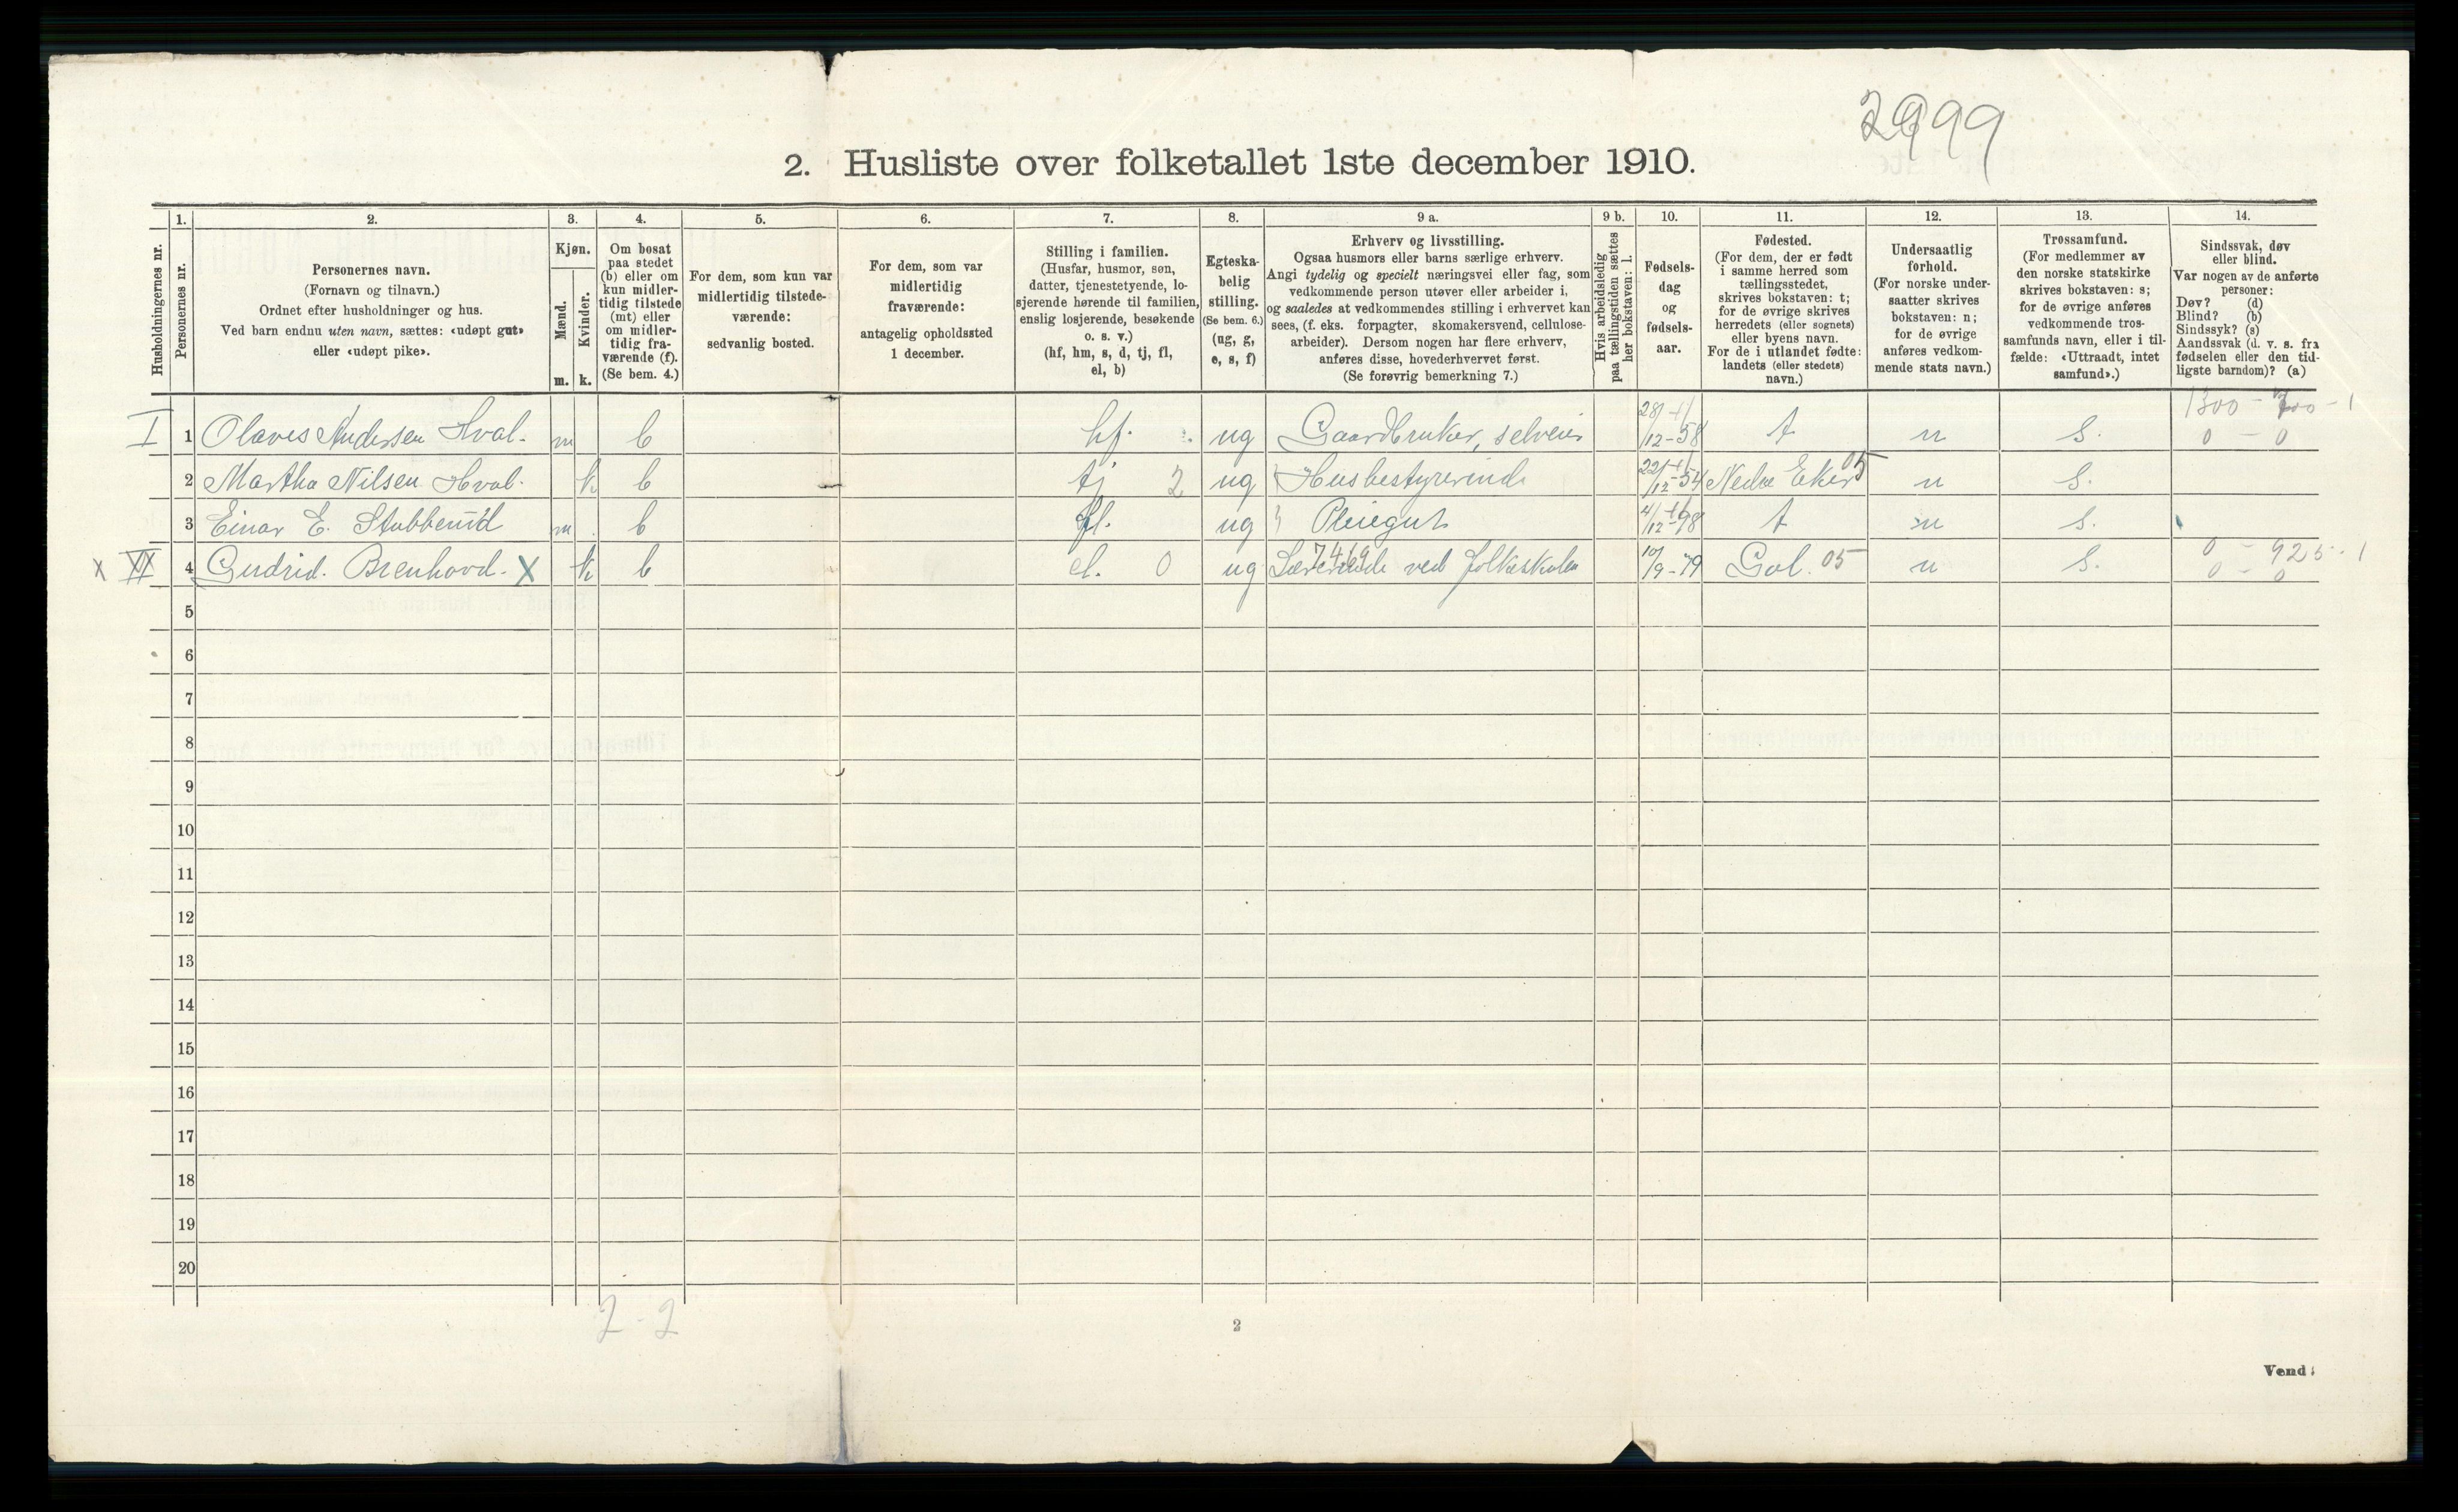 2999
2. Husliste over folketallet 1ste december 1910.
1. 2. 3. 4. 5. 6. 7. 8. 9 a. 9 b. 10. 11. 12. 13. 14.
Husholdningernes nr.
Personernes nr.
Personernes navn.
(Fornavn og tilnavn.)
Ordnet efter husholdninger og hus.
Ved barn endnu uten navn, sættes: «udøpt gut»
eller «udøpt pike».
Kjøn.
Mænd.
Kvinder.
m. k.
Om bosat
paa stedet
(b) eller om
kun midler-
tidig tilstede
(mt) eller
om midler-
tidig fra-
værende (f).
(Se bem. 4.)
For dem, som kun var
midlertidig tilstede-
værende:
sedvanlig bosted.
For dem, som var
midlertidig
fraværende:
antagelig opholdssted
1 december.
Stilling i familien.
(Husfar, husmor, søn,
datter, tjenestetyende, lo-
sjerende hørende til familien,
enslig losjerende, besøkende
o. s. v.)
(hf, hm, s, d, tj, fl,
el, b)
Egteska-
belig
stilling.
(Se bem. 6.)
(ug, g,
e, s, f)
Erhverv og livsstilling.
Ogsaa husmors eller barns særlige erhverv.
Angi tydelig og specielt næringsvei eller fag, som
vedkommende person utøver eller arbeider i,
og saaledes at vedkommendes stilling i erhvervet kan
sees, (f. eks. forpagter, skomakersvend, cellulose-
arbeider). Dersom nogen har flere erhverv,
anføres disse, hovederhvervet først.
(Se forøvrig bemerkning 7.)
Hvis arbeidsledig
paa tællingstiden sættes
her bokstaven: l.
Fødsels-
dag
og
fødsels-
aar.
Fødested.
(For dem, der er født
i samme herred som
tællingsstedet,
skrives bokstaven: t;
for de øvrige skrives
herredets (eller sognets)
eller byens navn.
For de i utlandet fødte:
landets (eller stedets)
navn.)
Undersaatlig
forhold.
(For norske under-
saatter skrives
bokstaven: n;
for de øvrige
anføres vedkom-
mende stats navn.)
Trossamfund.
(For medlemmer av
den norske statskirke
skrives bokstaven: s;
for de øvrige anføres
vedkommende tros-
samfunds navn, eller i til-
fælde: «Uttraadt, intet
samfund».)
Sindssvak, døv
eller blind.
Var nogen av de anførte
personer:
Døv? (d)
Blind? (b)
Sindssyk? (s)
Aandssvak (d. v. s. fra
fødselen eller den tid-
ligste barndom)? (a)
I 1 Olaves Andersen Hval. m b hf. ug Gaardbruker, selveier 28/12-58 t n s. 0 - 0
2 Martha Nilsen Hval. k b tj 2 ug Husbestyrerinde 22/12-54 Nedre Eker 05 n s.
3 Einar E. Stubberud m b fl. ug Pleiegut 4/12-98 t n s.
x 4 Gudrid. Brenhovd. X k b el. 0 ug Lærerinde ved folkeskolen 10/9-79 Gol. 05 n s. 0 - 925 - 1
0 - 0
5
6
7
8
9
10
11
12
13
14
15
16
17
18
19
20
2 - 2
2
Vend!